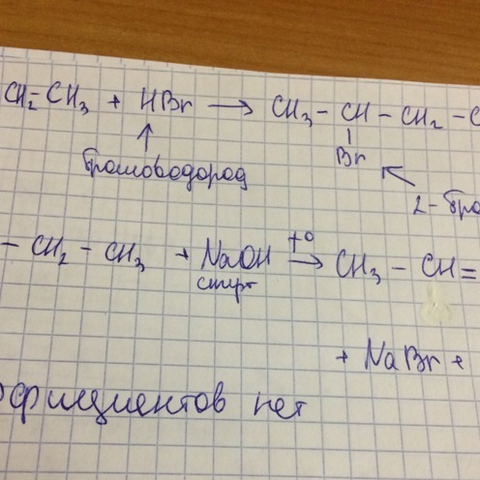 CH₂-CH₃ + HBr → CH₃ - CH - CH₂ - C
Br
бромоводород
2-бро
- CH₂ - CH₃ + NaOH t° → CH₃ - CH =
спирт
+ NaBr +
оэфициентов нет